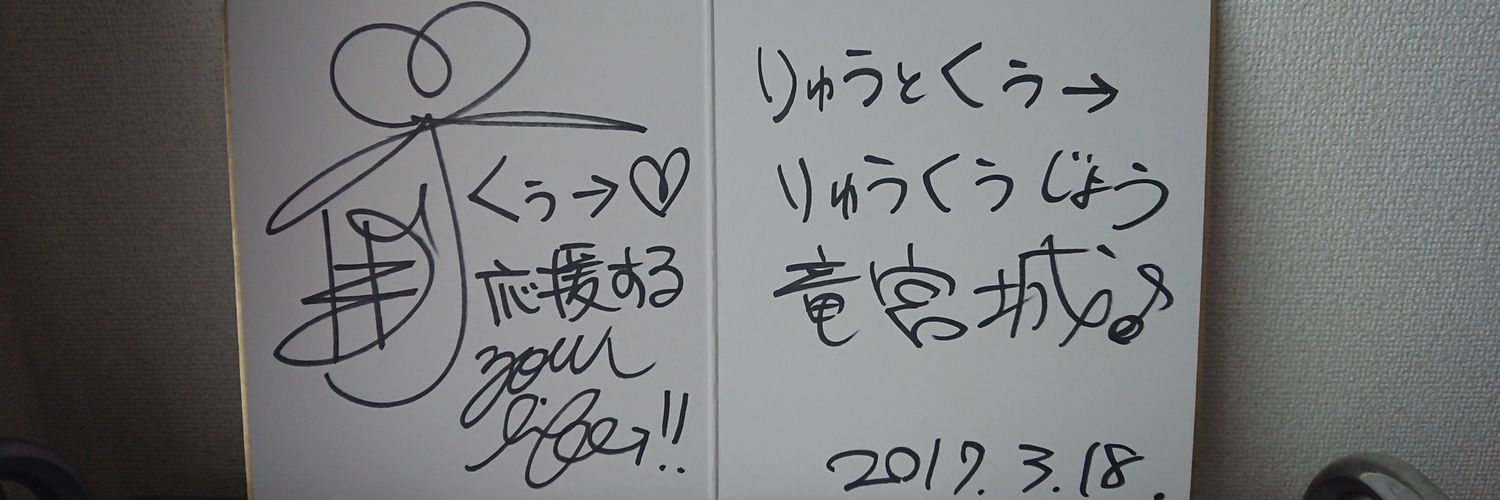 くぅ→♡
応援する
your
life→!!
りゅうとくぅ→
りゅうくうじょう
竜宮城♪
2017.3.18.